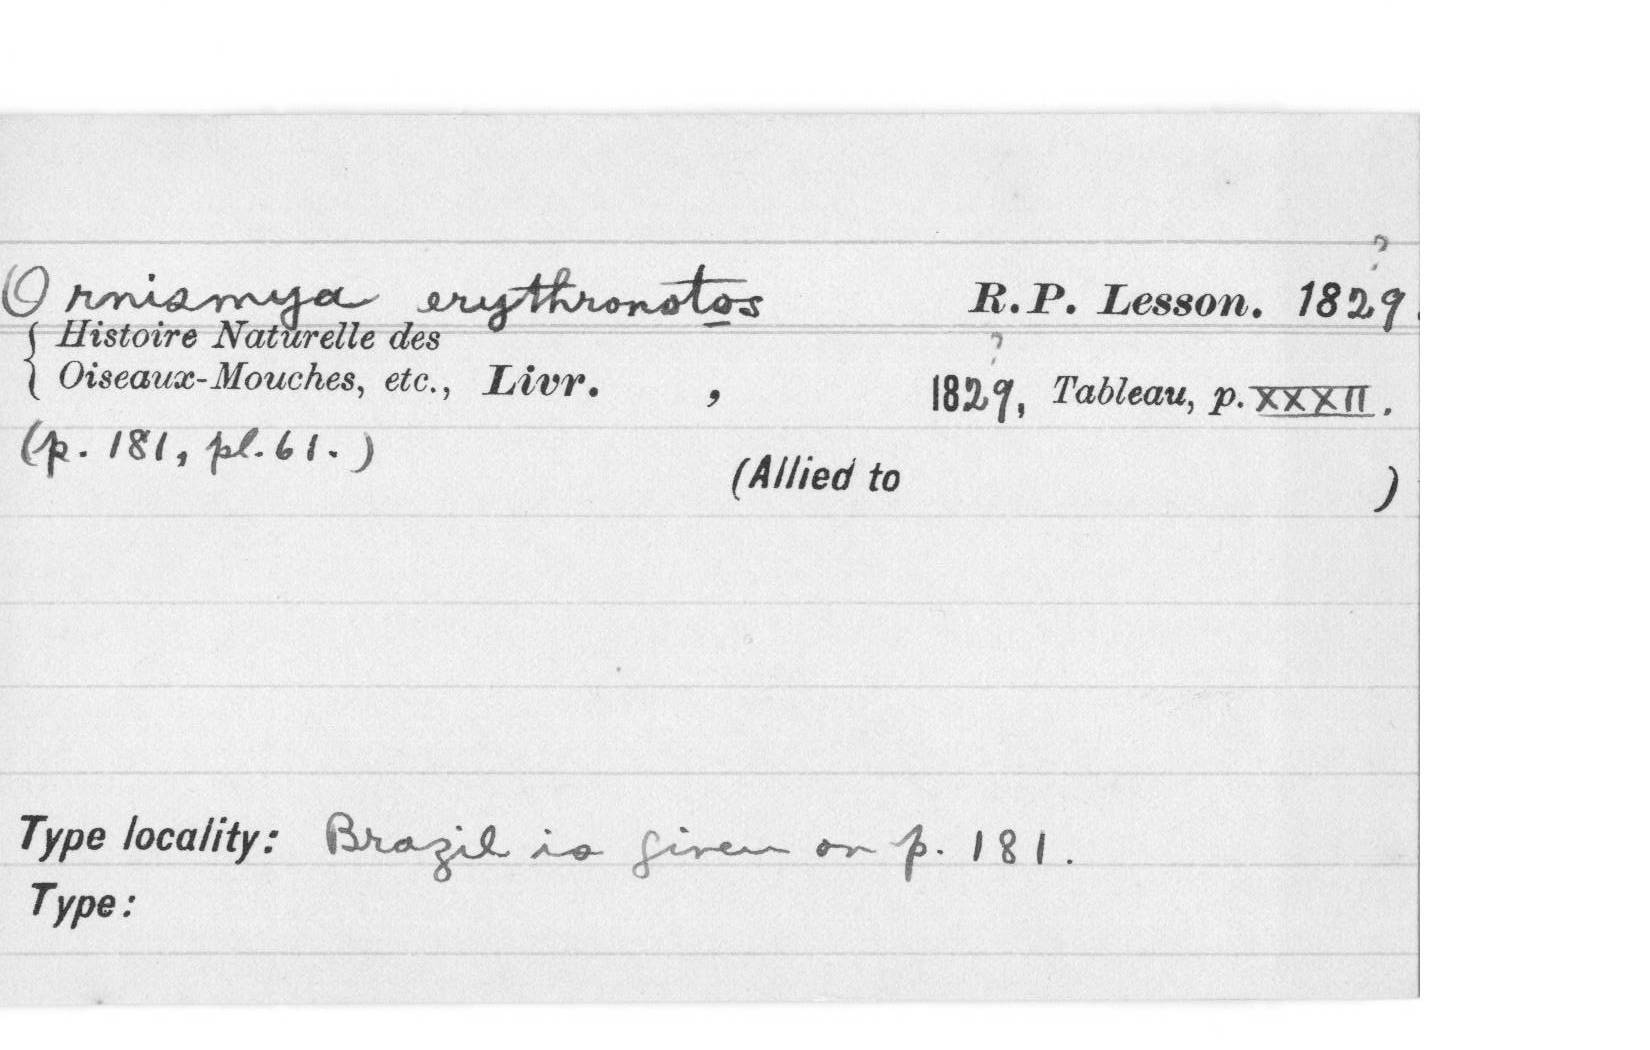 ?
Ornismya erythronotos R.P. Lesson. 1829.
{ Histoire Naturelle des ?
Oiseaux-Mouches, etc., Livr. , 1829, Tableau, p. XXXII.
(p. 181, pl. 61.)
(Allied to )
Type locality: Brazil is given on p. 181.
Type: